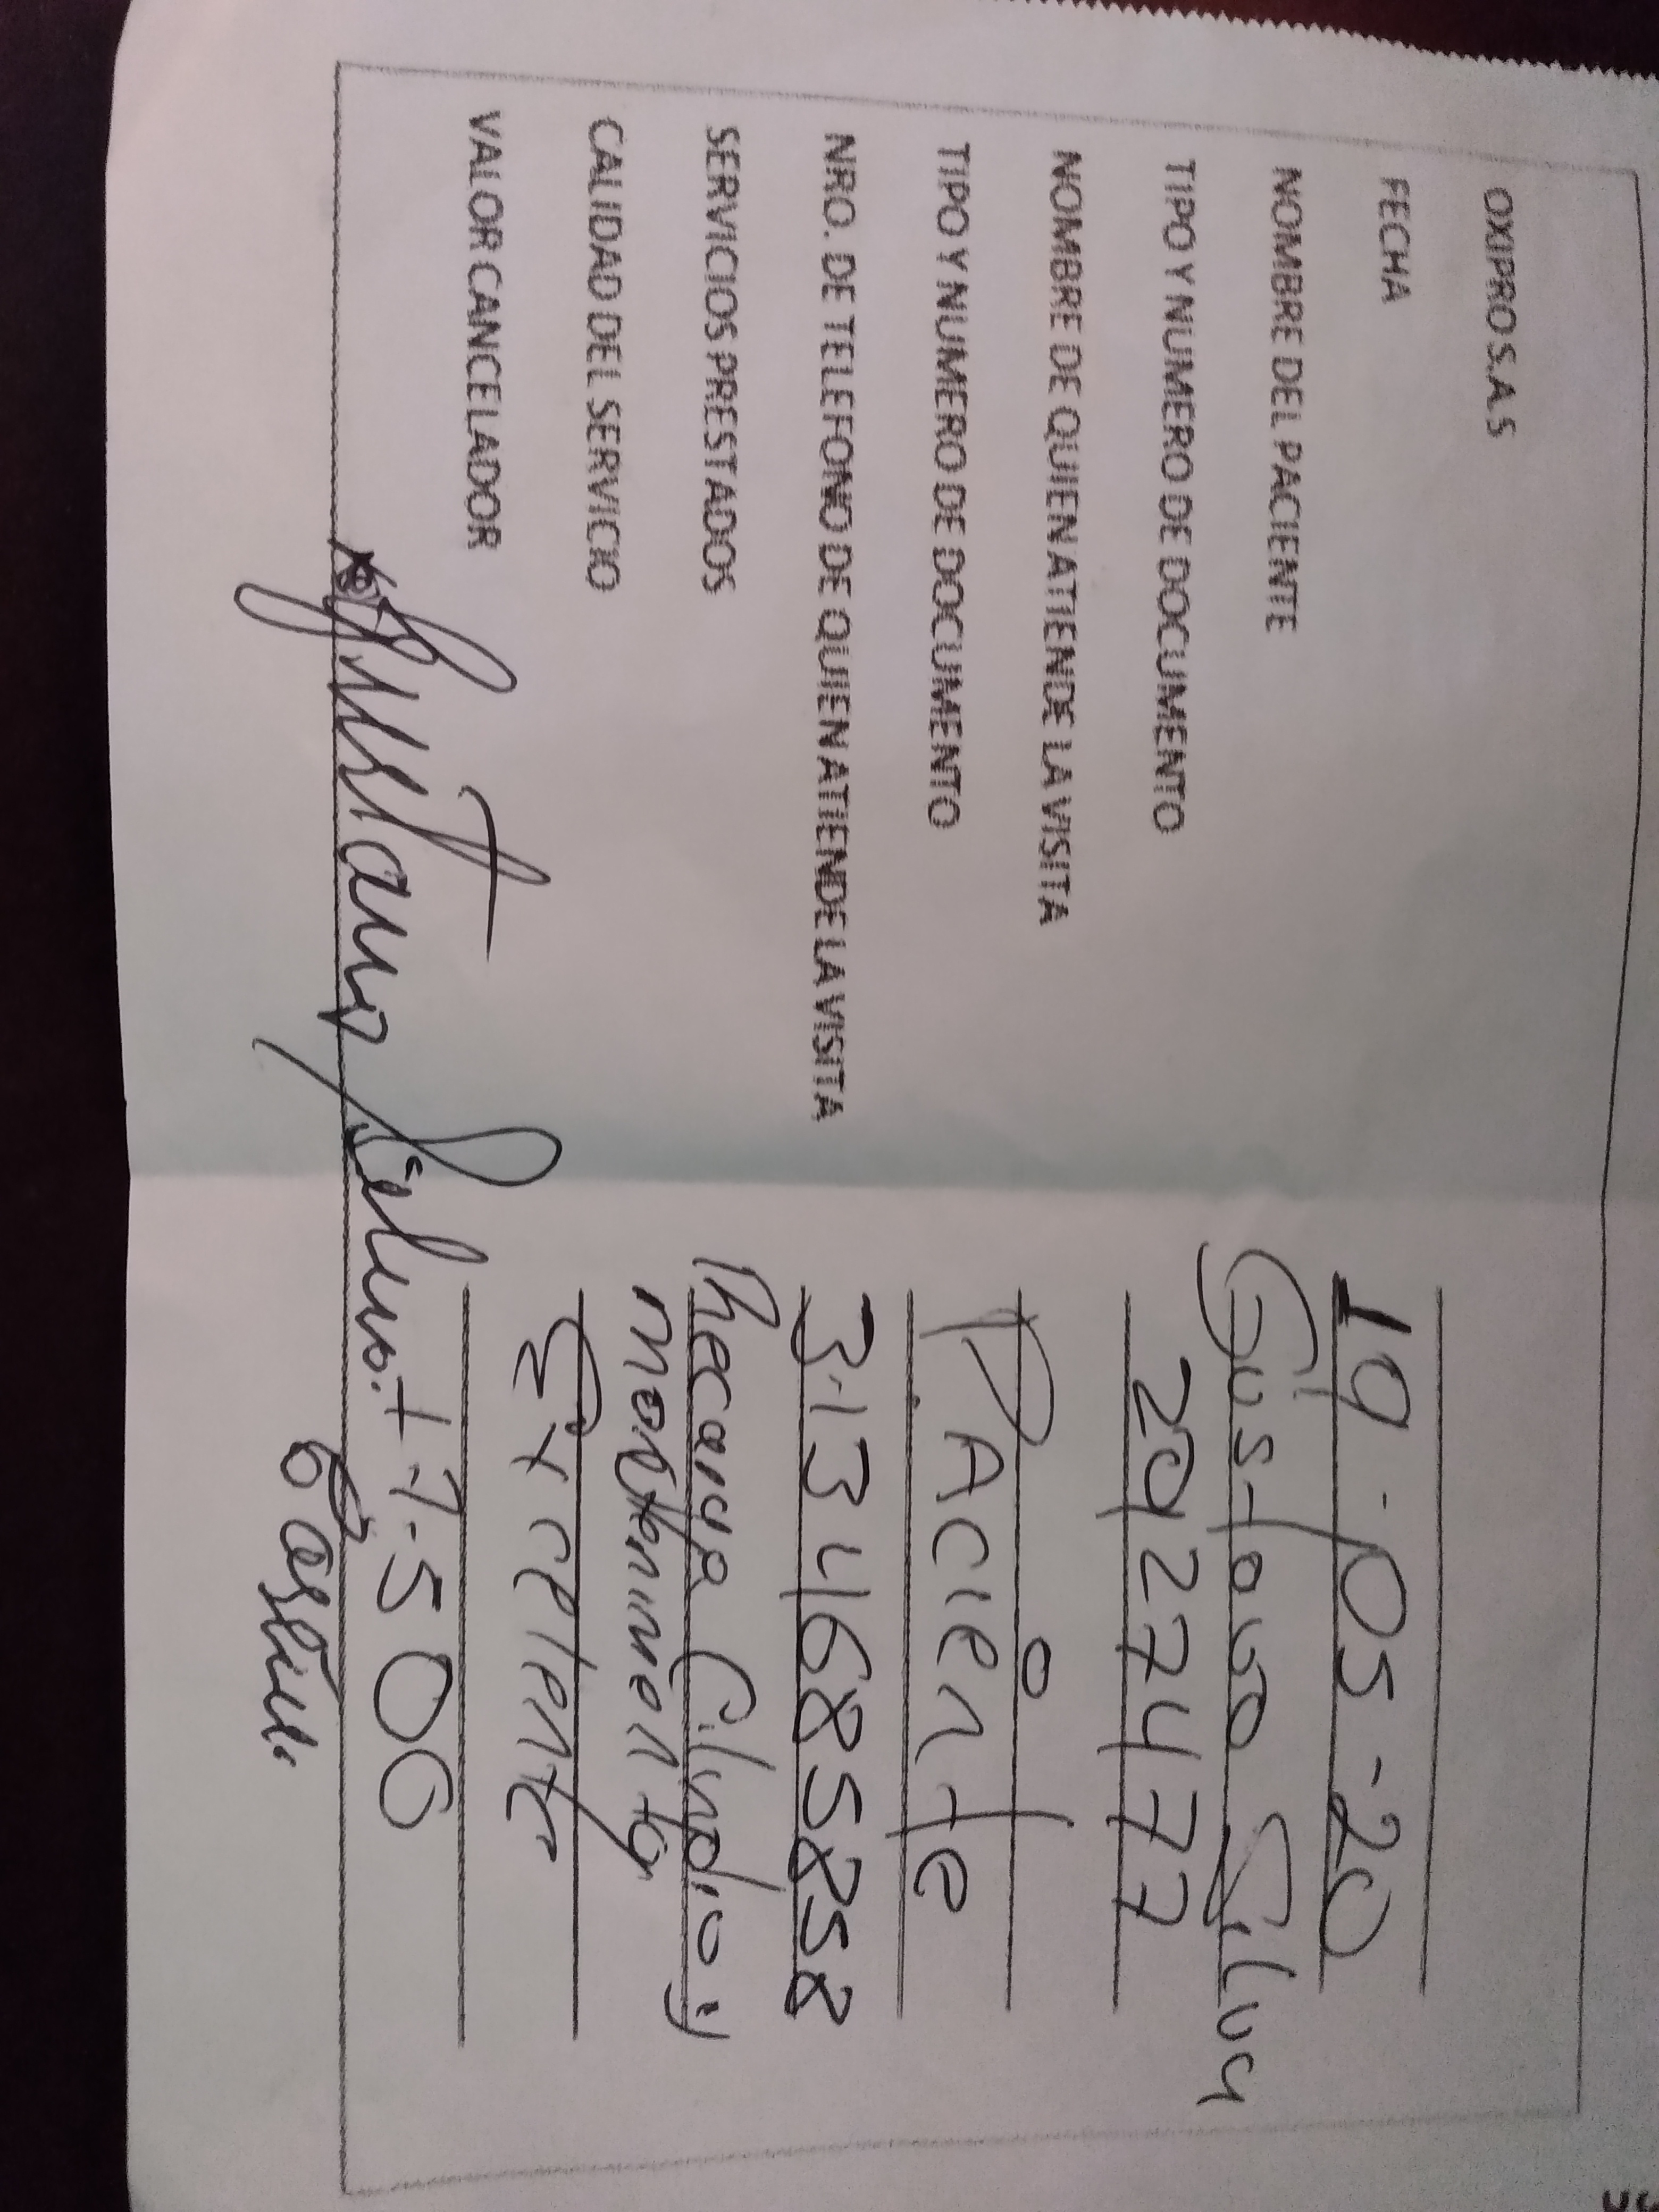 OXIPRO S.A.S
FECHA 19-05-20
NOMBRE DEL PACIENTE Gustavo Silva
TIPO Y NUMERO DE DOCUMENTO 2927477
NOMBRE DE QUIEN ATIENDE LA VISITA
TIPO Y NUMERO DE DOCUMENTO Paciente
NRO. DE TELEFONO DE QUIEN ATIENDE LA VISITA 3134685858
SERVICIOS PRESTADOS Recarga Cilindro y
CALIDAD DEL SERVICIO
VALOR CANCELADOR 7.500
Gustavo Silva